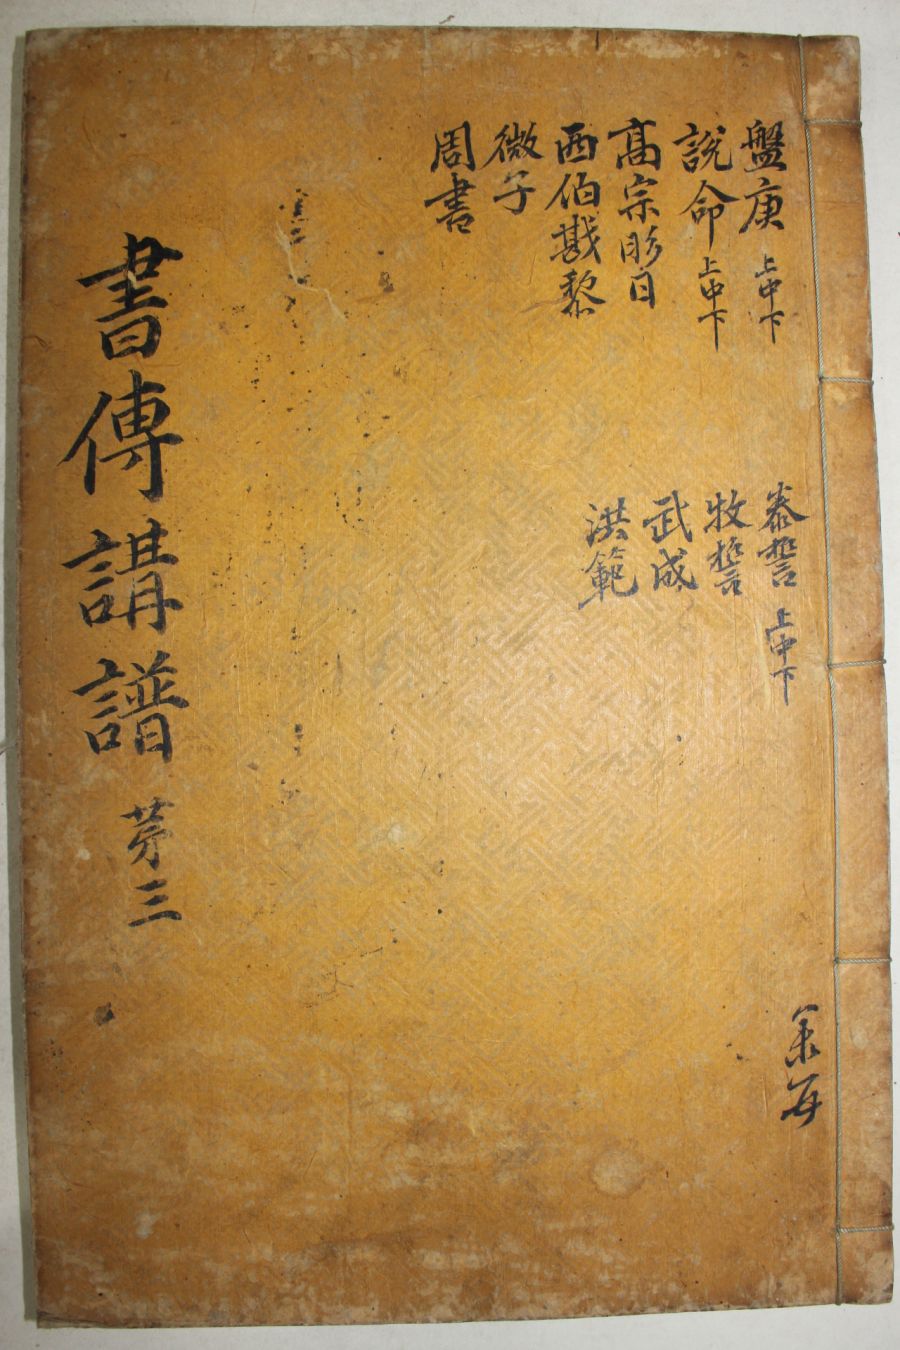 盤庚 上中下
說命 上中下
高宗肜日
西伯戡黎
微子
周書
泰誓 上中下
牧誓
武成
洪範
書傳講譜 苐三